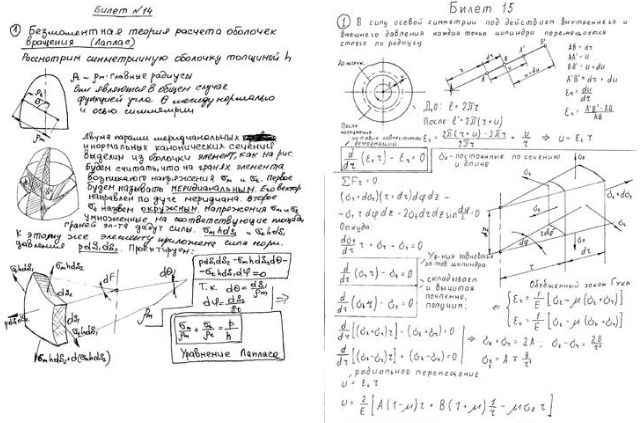 Билет N14
① Безмоментная теория расчета оболочек
вращения (Лаплас)
Рассмотрим симметричную оболочку толщиной h
ρₜ - ρₘ - главные радиусы
Они являются в общем случае
функцией угла θ между нормалью
и осью симметрии
Двумя парами меридиональных
и нормальных конических сечений
выделим из оболочки элемент, как на рис.
Будем считать, что на гранях элемента
возникают напряжения σₘ и σₜ. Первое
будем называть меридиональным. Его вектор
направлен по дуге меридиана. Второе
σₜ назовем окружным. Напряжения σₘ и σₜ
умноженные на соответствующие площади
граней эл-та дадут силы. σₘhdS₂ и σₜhdS₁
К этому же элементу приложена сила норм.
давления pdS₁dS₂. Проектируем:
pdS₁dS₂ - σₘhdS₂dθ -
- σₜhdS₁dφ = 0
Т.к. dθ = dS₁/ρₘ
dφ = dS₂/ρₜ
σₘ/ρₘ + σₜ/ρₜ = p/h
Уравнение Лапласа
σₘhdS₂
pdS₁dS₂
dS₂
dS₁
dF
dθ
ρₘ
σₜhdS₁
σₘhdS₂ + d(σₘhdS₂)
Билет 15
① В силу осевой симметрии под действием внутреннего и
внешнего давления каждая точка цилиндра перемещается
строго по радиусу
AB = dr
AA' = u
BB' = u + du
A'B' = dr + du
εᵣ = du/dr
εᵣ = (A'B' - AB)/AB
До: ℓ = 2πr
После ℓ' = 2π(r + u)
После
условие совместности деформаций
εₜ = (2π(r + u) - 2πr)/2πr = u/r ⇒ u = εₜ r
d/dr (εₜ r) - εᵣ = 0
σz - постоянные по сечению
и длине
ΣFᵣ = 0
(σᵣ + dσᵣ)(r + dr)dφdz -
- σᵣ r dφdz - 2σₜdrdz sin dφ/2 = 0
Откуда:
dσᵣ/dr r + σᵣ - σₜ = 0
d/dr (σᵣ r) - σₜ = 0
Ур-ния равновесия
эл-тов цилиндра
складываем
и вычитая
почленно,
получим:
Обобщенный закон Гука
εᵣ = 1/E [σᵣ - μ(σₜ + σz)]
εₜ = 1/E [σₜ - μ(σᵣ + σz)]
d/dr [(σₜ + σᵣ)r] - (σₜ + σᵣ) = 0
d/dr [(σₜ - σᵣ)r] + (σₜ - σᵣ) = 0
⇒ σₜ + σᵣ = 2A ; σₜ - σᵣ = 2B/r²
σᵣ = A ∓ B/r²
радиальное перемещение
u = εₜ r
u = 2/E [A(1-μ)r + B(1+μ) 1/r - μσz r]